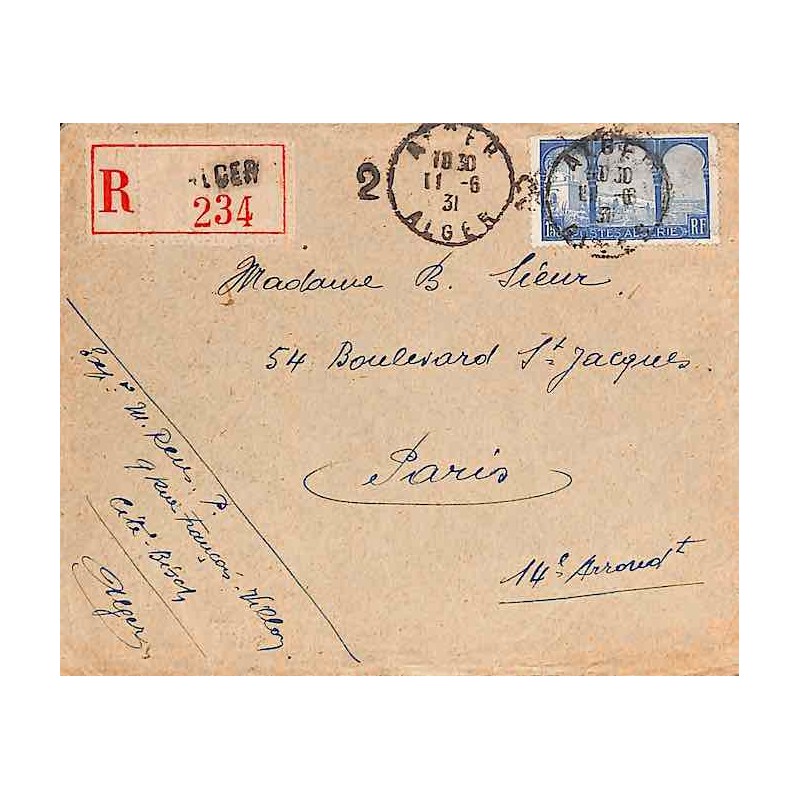 R ALGER
234
2
ALGER
10 30
11 -6
31
ALGER
ALGER
10 30
11 -6
31
POSTES ALGÉRIE RF
Madame B. Sieur
54 Boulevard St Jacques
Paris
14e Arrondt
Expr M. P.
9 rue François-Villon
Cité Bisch
Alger